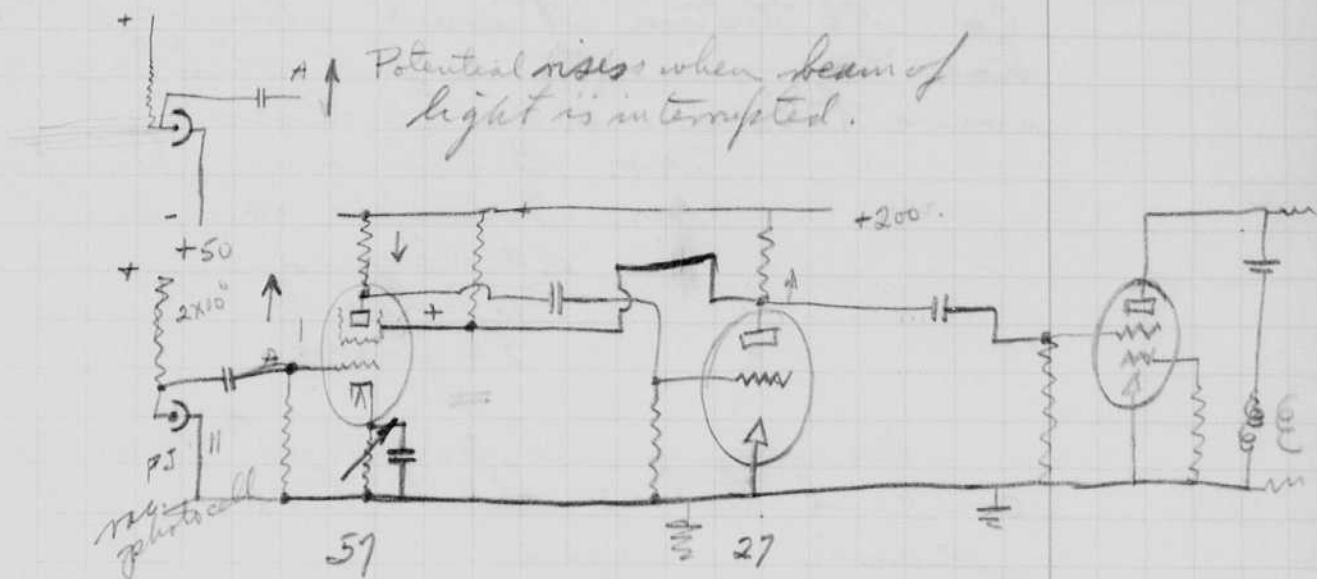 +
A Potential rises when beam of
light is interrupted.
-
+50
+
+200
2×10⁶
+
A
PJ 11
photocell
57
27